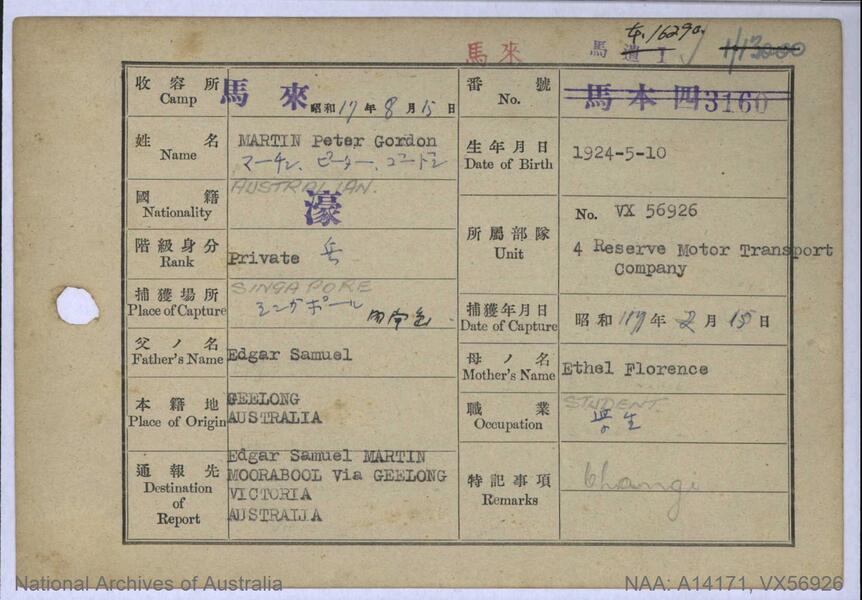 馬來
馬
收容所
Camp
馬來
昭和17年8月15日
番號
No.
馬本四3160
姓名
Name
MARTIN Peter Gordon
マーチン、ピーター、ゴードン
生年月日
Date of Birth
1924-5-10
國籍
Nationality
AUSTRALIAN.
濠
所屬部隊
Unit
No. VX 56926
4 Reserve Motor Transport
Company
階級身分
Rank
Private 兵
捕獲場所
Place of Capture
SINGAPORE
シンガポール
捕獲年月日
Date of Capture
昭和17年2月15日
父ノ名
Father's Name
Edgar Samuel
母ノ名
Mother's Name
Ethel Florence
本籍地
Place of Origin
GEELONG
AUSTRALIA
職業
Occupation
STUDENT
学生
通報先
Destination
of
Report
Edgar Samuel MARTIN
MOORABOOL Via GEELONG
VICTORIA
AUSTRALIA
特記事項
Remarks
Changi
National Archives of Australia
NAA: A14171, VX56926